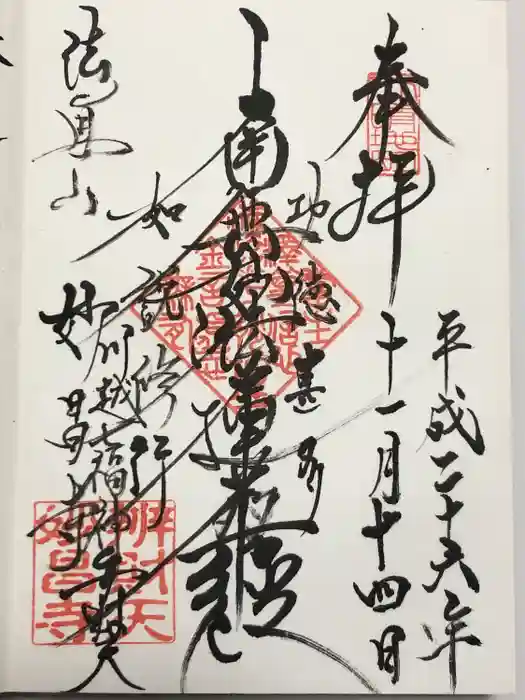 奉拝
平成二十六年
十一月十四日
功徳甚多
南無妙法蓮華経
如説修行
法眞山
妙昌寺
川越七福神弁財天
辨財天
妙昌寺